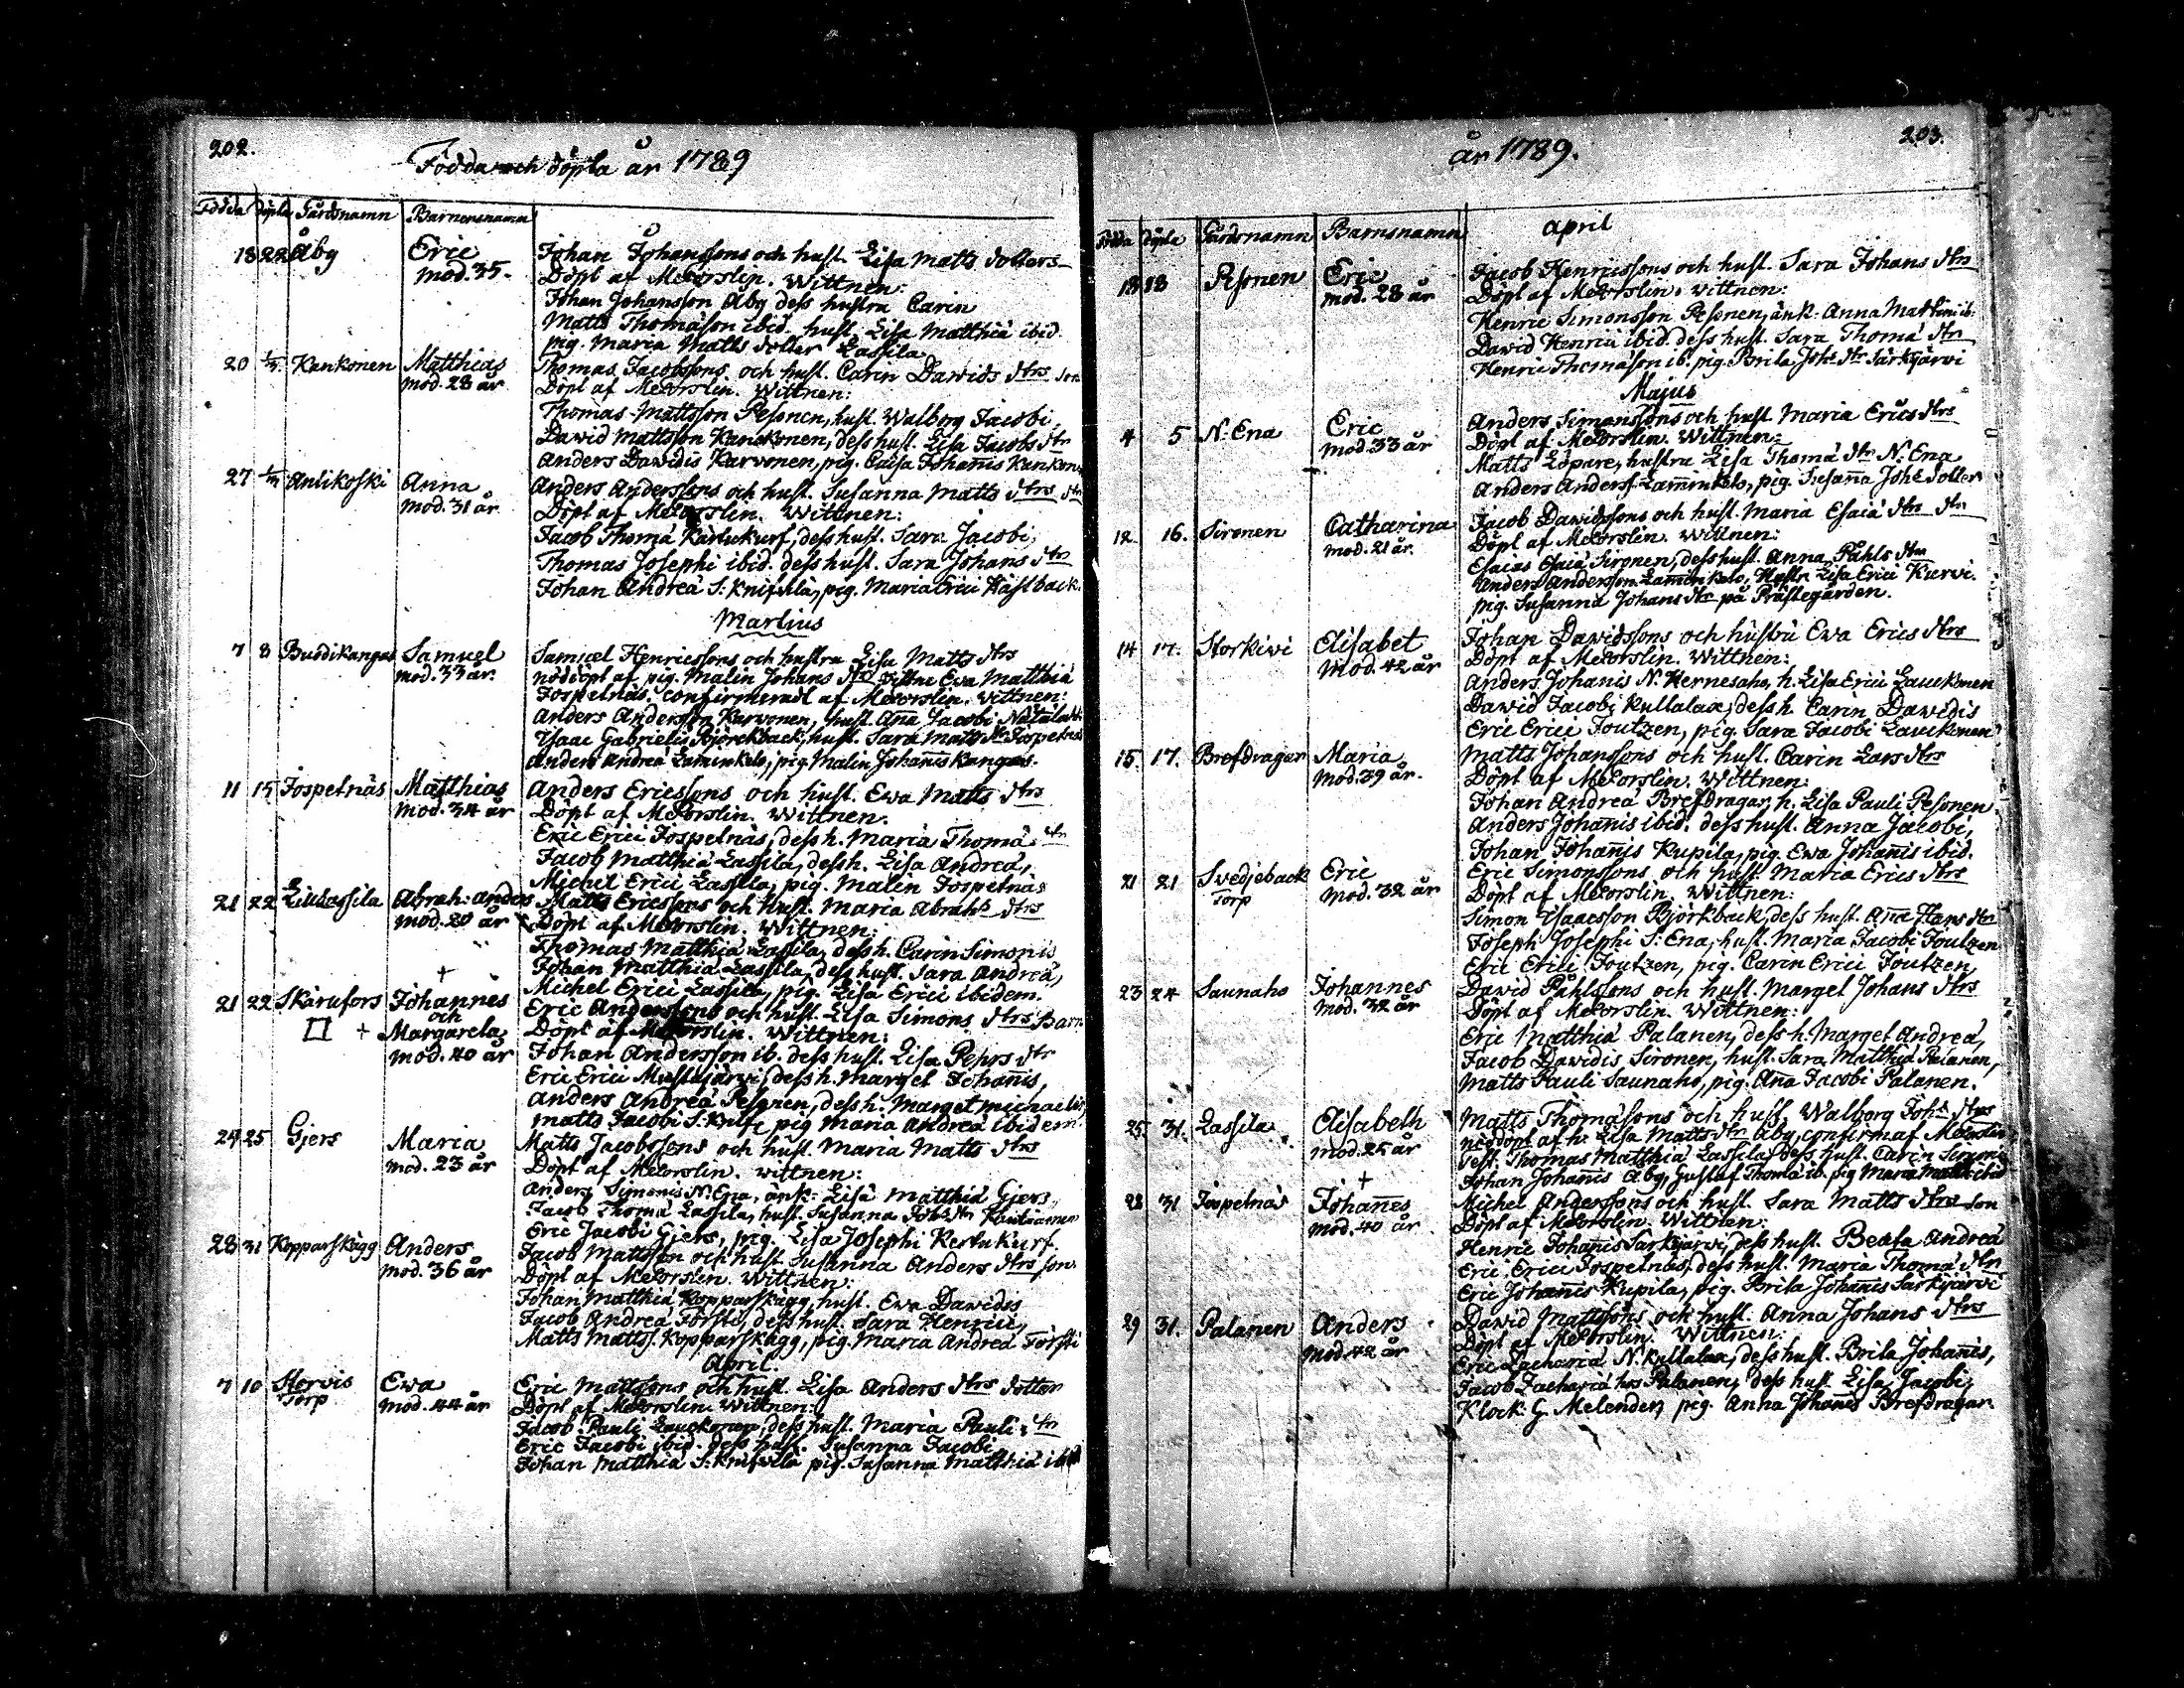 202.
Födda och döpta år 1789
Födda döpta Gårdsnamn Barnensnamn
18 22 Åby Eric Johan Johanssons och hust. Lisa Matts dotters
mod. 35. Döpt af Melorslin. Wittnen:
Johan Johansson Åby dess hustra Carin
Matts Thomasson ibid. hust. Lisa Matthiä ibid.
pig. Maria Matts dotter Lassila
20 1/3 Kankonen Matthias Thomas Jacobssons och hust. Carin Dawids dtrs son
mod. 28 år Döpt af Melorslin. Wittnen:
Thomas Mattsson Pesonen, hust. Walborg Jacobi,
Dawid Mattsson Kanckonen, dess hust. Lisa Jacobs dtr
Anders Dawidis Karvonen, pig. Caisa Johannis Kankon
27 1/3 Antikoski Anna Anders Anderssons och hust. Susanna Matts dtrs dtr
mod. 31 år Döpt af Melorslin. Wittnen:
Jacob Thomä Kärtukurf, dess hust. Sara Jacobi,
Thomas Josephi ibid. dess hust. Sara Johans dtr
Johan Andreä S: Knifvilä, pig. Maria Erici Hästback.
Martius
7 8 Buddikangas Samuel Samuel Henricssons och hustra Lisa Matts dtrs
mod. 33 år. nöddöpt af pig. Malin Johans dtr Ewa Matthiä
Jospetnäs. confirmeradt af Melorslin. Wittnen:
Anders Andersson Karvonen, hust. Aña Jacobi
Isaac Gabrielis Björckback, hust. Sara Matts dtr Jospetnäs
Anders Andreä Lamenkelo, pig. Malin Johañis Kangas.
11 15 Jospetnäs Matthias Anders Ericssons och hust. Ewa Matts dtrs
mod. 34 år Döpt af Melorslin. Wittnen.
Eric Erici Jospetnäs, dess h. Maria Thomä dtr
Jacob Matthiä Lassila, dess h. Lisa Andreä,
Michel Erici Lassila, pig. Malin Jospetnäs
21 22 Lillassila Abrah: Anders Matts Ericssons och hust. Maria Abrahs dtrs
mod. 20 år Döpt af Melorslin. Wittnen:
Thomas Matthiä Lassila, dess h. Carin Simonis
Johan Matthiä Lassila, dess hust. Sara Andreä,
Michel Erici Lassila, pig. Lisa Erici ibidem.
21 22 Skärufors + Johannes Eric Anderssons och hust. Lisa Simons dtrs Barn
och
+ Margareta Döpt af Melorslin. Wittnen:
mod. 40 år Johan Andersson ib. dess hust. Lisa Pehrs dtr
Eric Erici Mustajärvi, dess h. Marget Johañis,
Anders Andreä Pesonen, dess h. Marget Michaelis,
Matts Jacobi S: Knif, pig Maria Andreä ibidem.
24 25 Gjers Maria Matts Jacobssons och hust. Maria Matts dtrs
mod. 23 år Döpt af Melorslin. Wittnen:
Anders Simonis N: Ena, änk: Lisa Matthiä Gjers,
Jacob Thomä Lassila, hust. Susanna Johs dtr
Eric Jacobi Gjers, pig. Lisa Josephi Kertukurf.
28 31 Kopparskägg Anders Jacob Mattsson och hust. Susanna Anders dtrs son.
mod. 36 år Döpt af Melorslin. Wittnen:
Johan Matthiä Kopparskägg, hust. Ewa Dawidis
Jacob Andreä Försti, dess hust. Sara Henrici,
Matts Mattss. Kopparskägg, pig. Maria Andreä Försti
April.
7 10 Storvis Ewa Eric Mattssons och hust. Lisa Anders dtrs dotter
Torp mod. 44 år Döpt af Melorslin. Wittnen:
Jacob Pauli Lauckonen, dess hust. Maria Pauli dtr
Eric Jacobi ibid. dess hust. Susanna Jacobi
Johan Matthiä S: Knifvilä pig. Susanna Matthiä ibid
år 1789.
203.
Födda döpta Gårdsnamn Barnsnamn
april
18 18 Pesonen Eric Jacob Henricssons och hust. Sara Johans dtrs
mod. 28 år Döpt af Melorslin. Wittnen:
Henric Simonsson Pesonen, änk. Anna Matthiä ib:
Dawid Henrici ibid. dess hust. Sara Thomä dtr
Henric Thomäson ib. pig. Brita Johs dtr Särkijärvi
Majus
4 5 N. Ena Eric Anders Simonssons och hust. Maria Erics dtrs
mod. 33 år Döpt af Melorslin. Wittnen:
Matts Löpare, hustra Lisa Thomä dtr N. Ena
Anders Anderss. Lammenkelo, pig. Susaña Johs dotter
12 16. Sironen Catharina Jacob Dawidssons och hust. Maria Esaiä dtrs dtr
mod. 21 år. Döpt af Melorslin. Wittnen:
Esaias Esaiä Sironen, dess hust. Anna Påhls dtr
Anders Andersson Lammenkelo, Hustr. Lisa Erici Kurvi.
pig. Susanna Johans dtr på Prästegården.
14 17. Storkivi Elisabet Johan Dawidssons och hustru Ewa Erics dtrs
mod. 42 år Döpt af Melorslin. Wittnen:
Anders Johanis N. Hernesaho, h. Lisa Erici Lauckonen
Dawid Jacobi Kullalax, dess h. Carin Dawidis
Eric Erici Joutzen, pig. Sara Jacobi Lauckonen
15. 17. Brefdragar Maria Matts Johanssons och hust. Carin Lars dtrs
mod. 39 år. Döpt af Melorslin. Wittnen:
Johan Andreä Brefdragar, h. Lisa Pauli Pesonen
Anders Johañis ibid. dess hust. Anna Jacobi,
Johan Johañis Kupila, pig. Ewa Johañis ibid.
21 21 Svedjeback Eric Eric Simonssons och hust. Maria Erics dtrs
Torp mod. 32 år Döpt af Melorslin. Wittnen:
Simon Isaacsson Björkback, dess hust. Aña Hans dtr
Joseph Josephi S: Ena, hust. Maria Jacobi Joutzen
Eric Erici Joutzen, pig. Carin Erici Joutzen
23 24 Saunaho Johannes Dawid Påhlssons och hust. Marget Johans dtrs
mod. 32 år Döpt af Melorslin. Wittnen:
Eric Matthiä Palanen, dess h. Marget Andreä,
Jacob Dawidis Sironen, hust. Sara Matthiä Palanen,
Matts Pauli Saunaho, pig. Aña Jacobi Palanen.
25 31. Lassila Elisabeth Matts Thomässons och hust. Walborg Johs dtrs
mod. 25 år nöddöpt af h. Lisa Matts dtr Åby, confirm af Melorslin
Test: Thomas Matthiä Lassila, dess hust. Carin Simonis
Johan Johañis Åby, Gustaf Thomä ib. pig Maria Matthiä ibid
28 31 Jospetnäs + Johañes Michel Anderssons och hust. Sara Matts dtrs son
mod. 40 år Döpt af Melorslin. Wittnen:
Henric Johañis Särkijärvi, dess hust. Beata Andreä
Eric Erici Jospetnäs, dess hust. Maria Thomä dtr
Eric Johañis Kupila, pig. Brita Johañis Särkijärvi
29 31. Palanen Anders David Mattssons och hust. Anna Johans dtrs
mod. 42 år Döpt af Melorslin. Wittnen:
Eric Zachariä N. Kullalax, dess hust. Brita Johañis,
Jacob Zachariä hos Palanen, dess hust. Lisa Jacobi,
Klock. G. Melender, pig. Anna Johañes Brefdragar